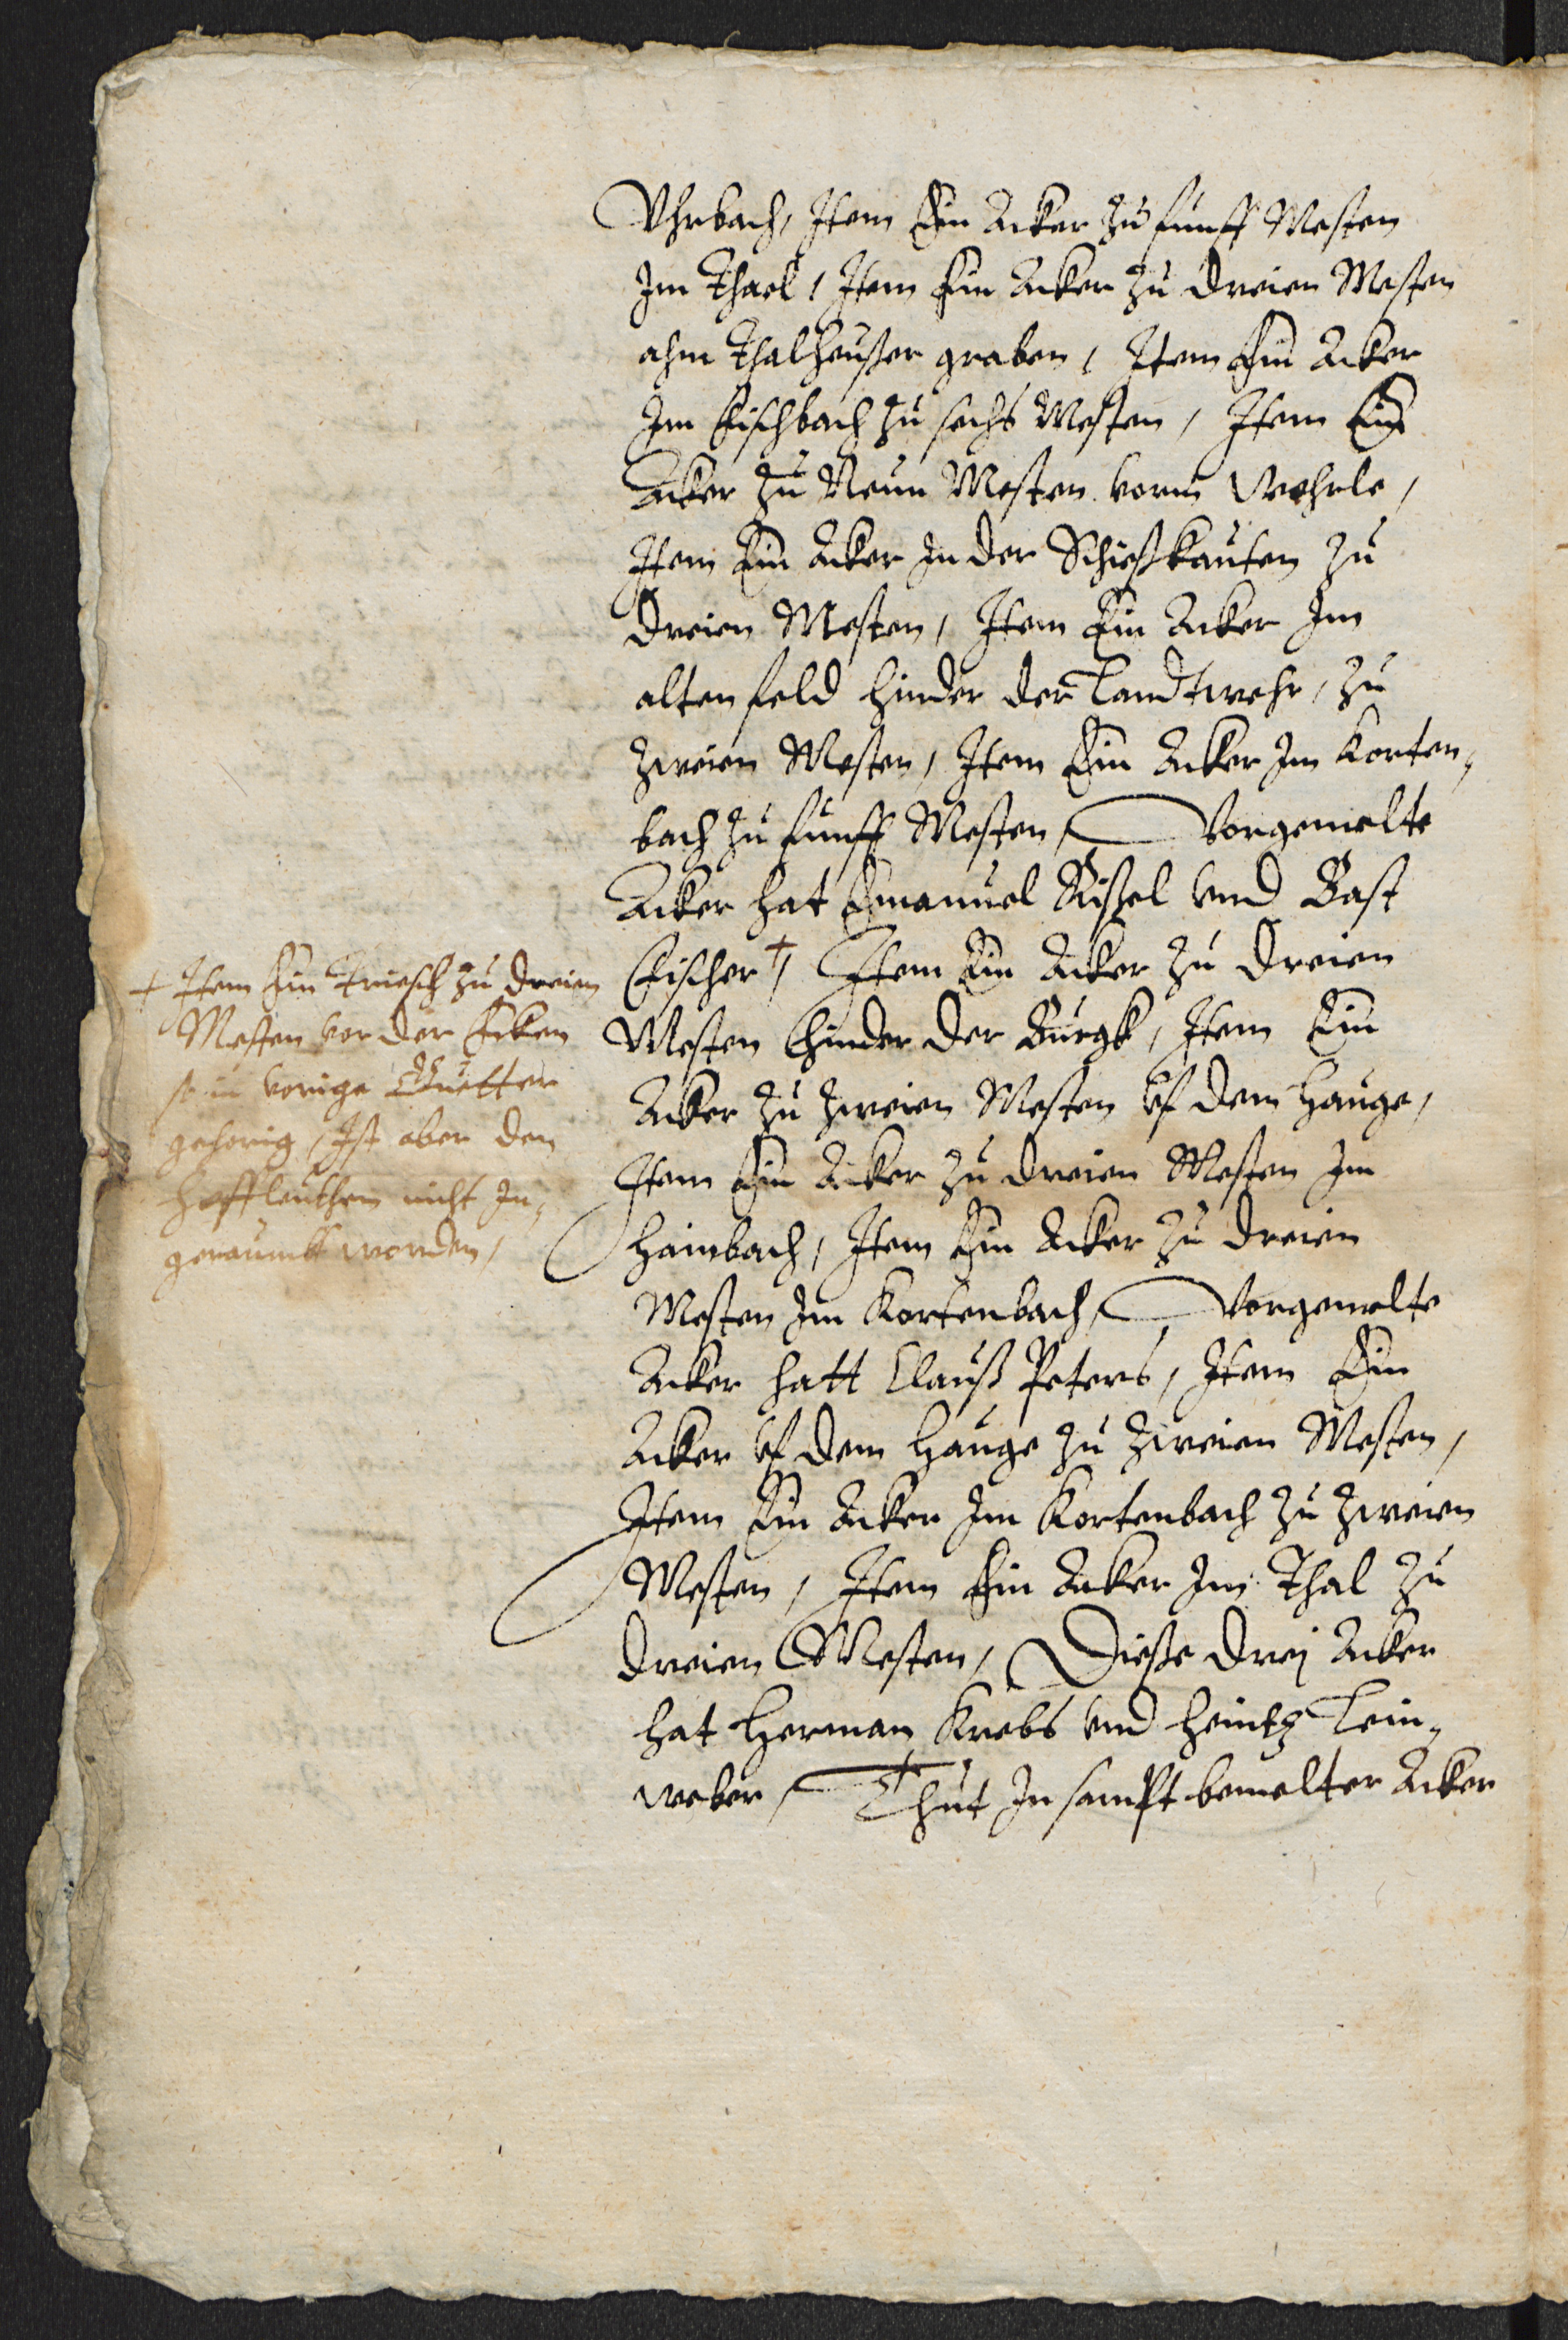 Uhrbach, Item Ein Acker zu funff Mesten
Im Thael, Item Ein Acker zu dreien Mesten
ahm Thalheußer graben, Item Ein Acker
Im Eischbach zu sechs Mesten, Item Ein
Acker zu Neun Mesten vorm Wehrle,
Item Ein Acker In der Schießkauten zu
dreien Mesten, Item Ein Acker Im
alten feld hinder der Landtwehr, zu
zweien Mesten, Item Ein Acker Im Korten¬
bach zu funff Mesten, Vorgemelte
Acker hat Emanuel Kißel vnd Bast
Eischer +, Item Ein Acker zu dreien
Mesten hinder der Burgk, Item Ein
Acker zu zweien Mesten vf dem Hauge,
Item Ein Acker zu dreien Mesten Im
Hainbach, Item Ein Acker zu dreien
Mesten Im Kortenbach, Vorgemelte
Acker hatt Clauß Peters, Item Ein
Acker vf dem Hauge zu zweien Mesten,
Item Ein Acker Im Kortenbach zu zweien
Mesten, Item Ein Acker Im Thal zu
dreien Mesten, Dieße drej Acker
hat Herman Krebs vnd Heintz Lein¬
weber, Thut In sampt bemelter Acker
+ Item Ein Triesch zu dreien
Mesten vor der Ecken
so in vorige Guetter
gehorig, Ist aber den
Hoffleuthen nicht In¬
geraumbt worden,